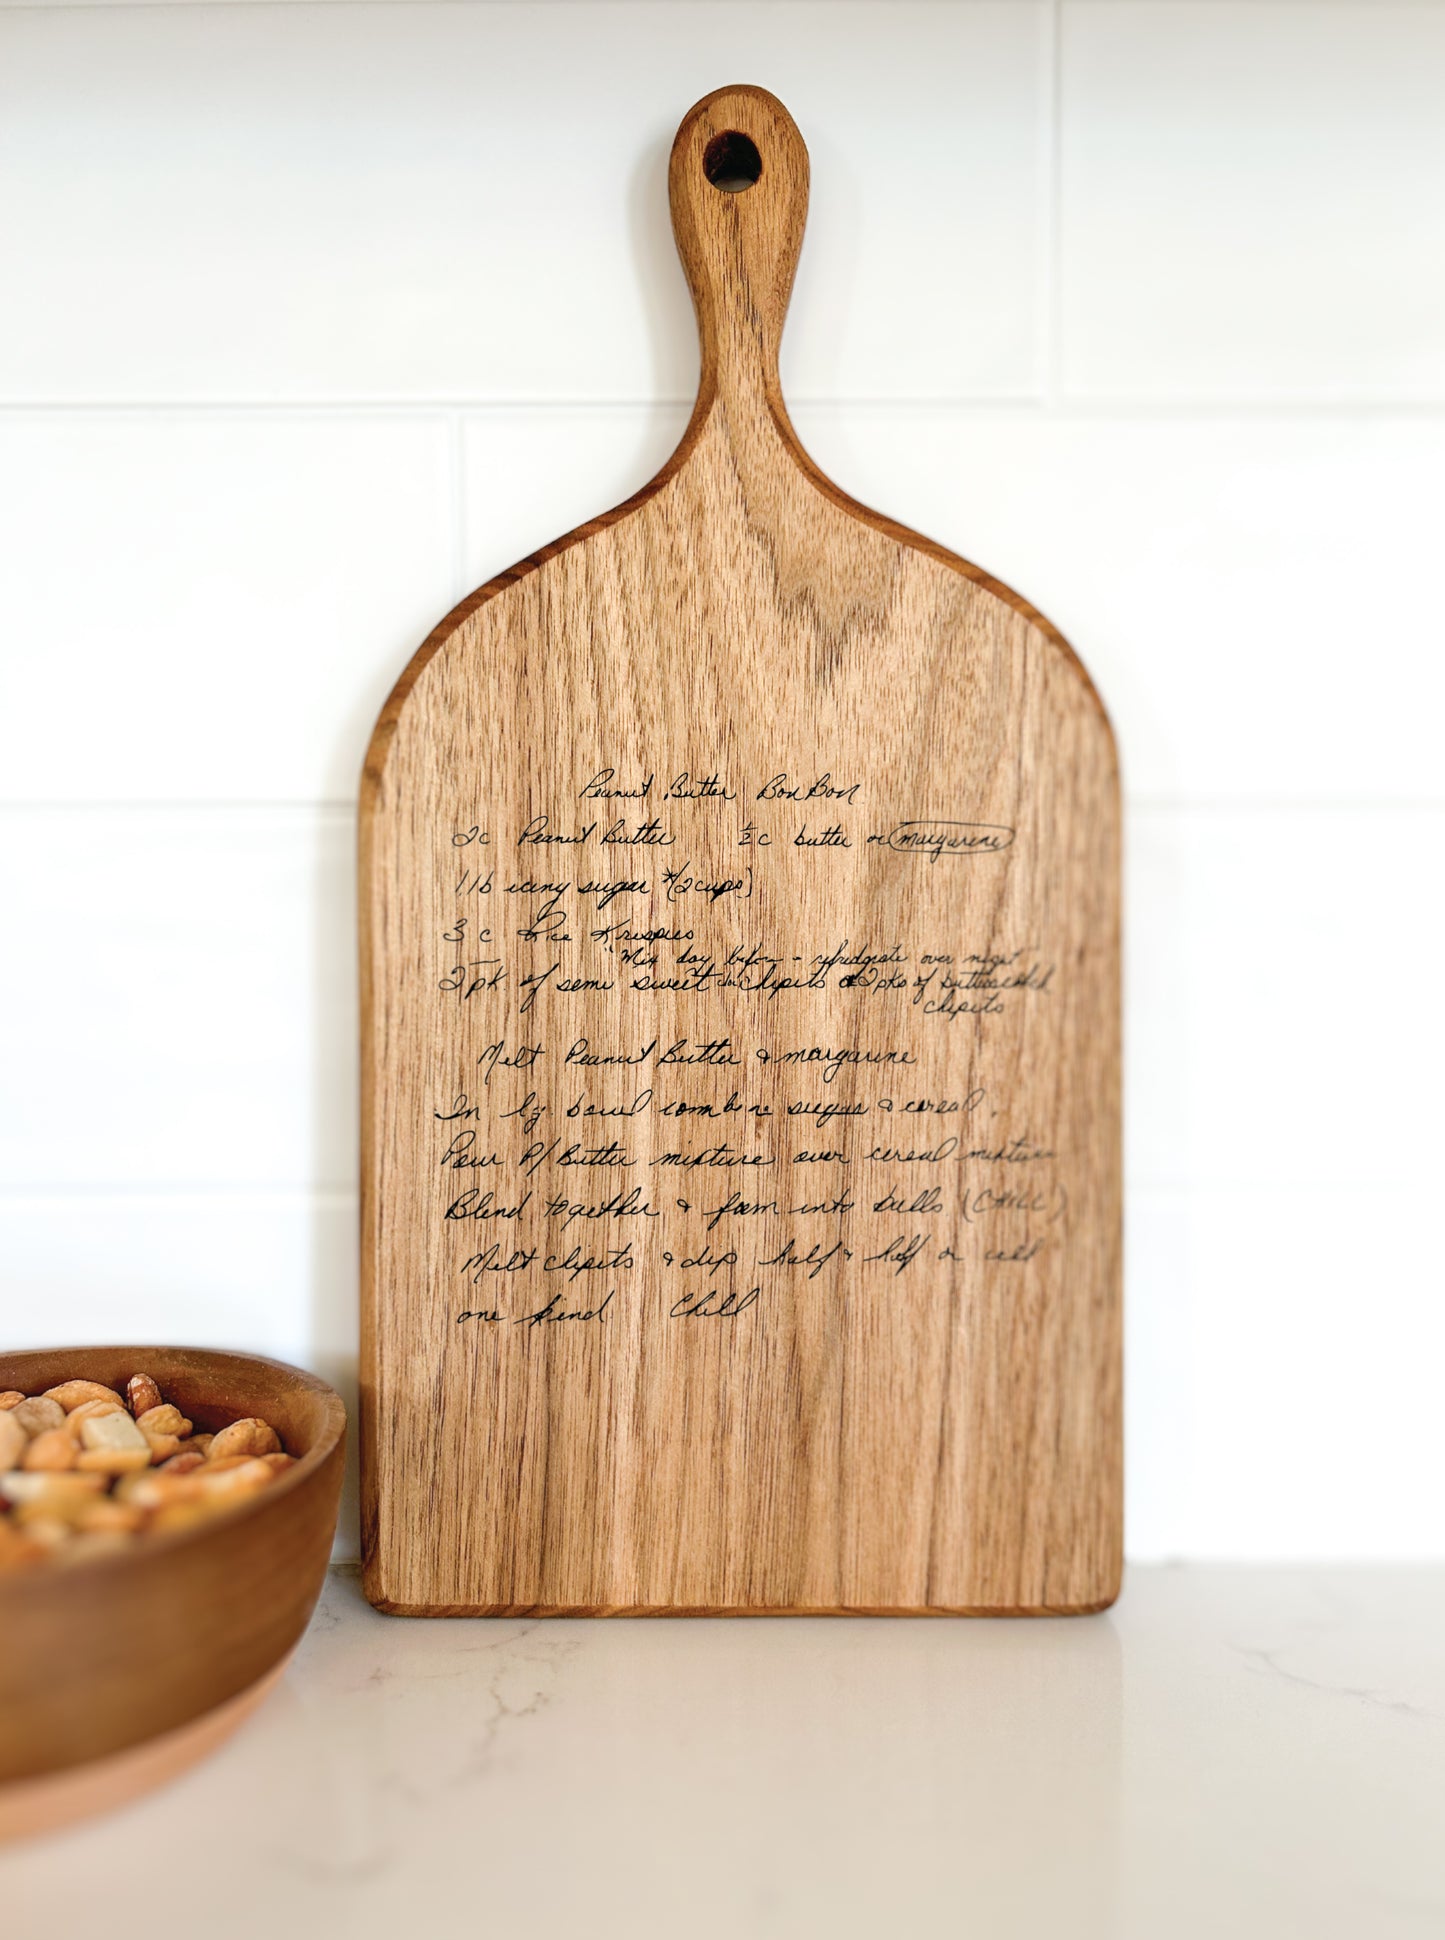 Peanut Butter Bon Bon
2c Peanut Butter ½ c butter or margarine
1 lb icing sugar *(2 cups)
3 c Rice Krispies
"Mix day before - refridgrate over night"
2 pk. of semi sweet chipits or 2 pks of butterscotch
chipits
Melt Peanut Butter & margarine
In lg. bowl combine sugar & cereal.
Pour P/Butter mixture over cereal mixture
Blend together & form into balls (CHILL)
Melt chipits & dip half & half or all
one kind Chill